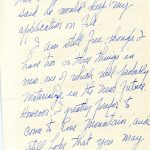 said he would keep my
application on file.
I am still free though I
have two or three things in
view, one of which will probably
materialize in the near future.
However, I greatly prefer to
come to Pine Mountain and
still hope that you may